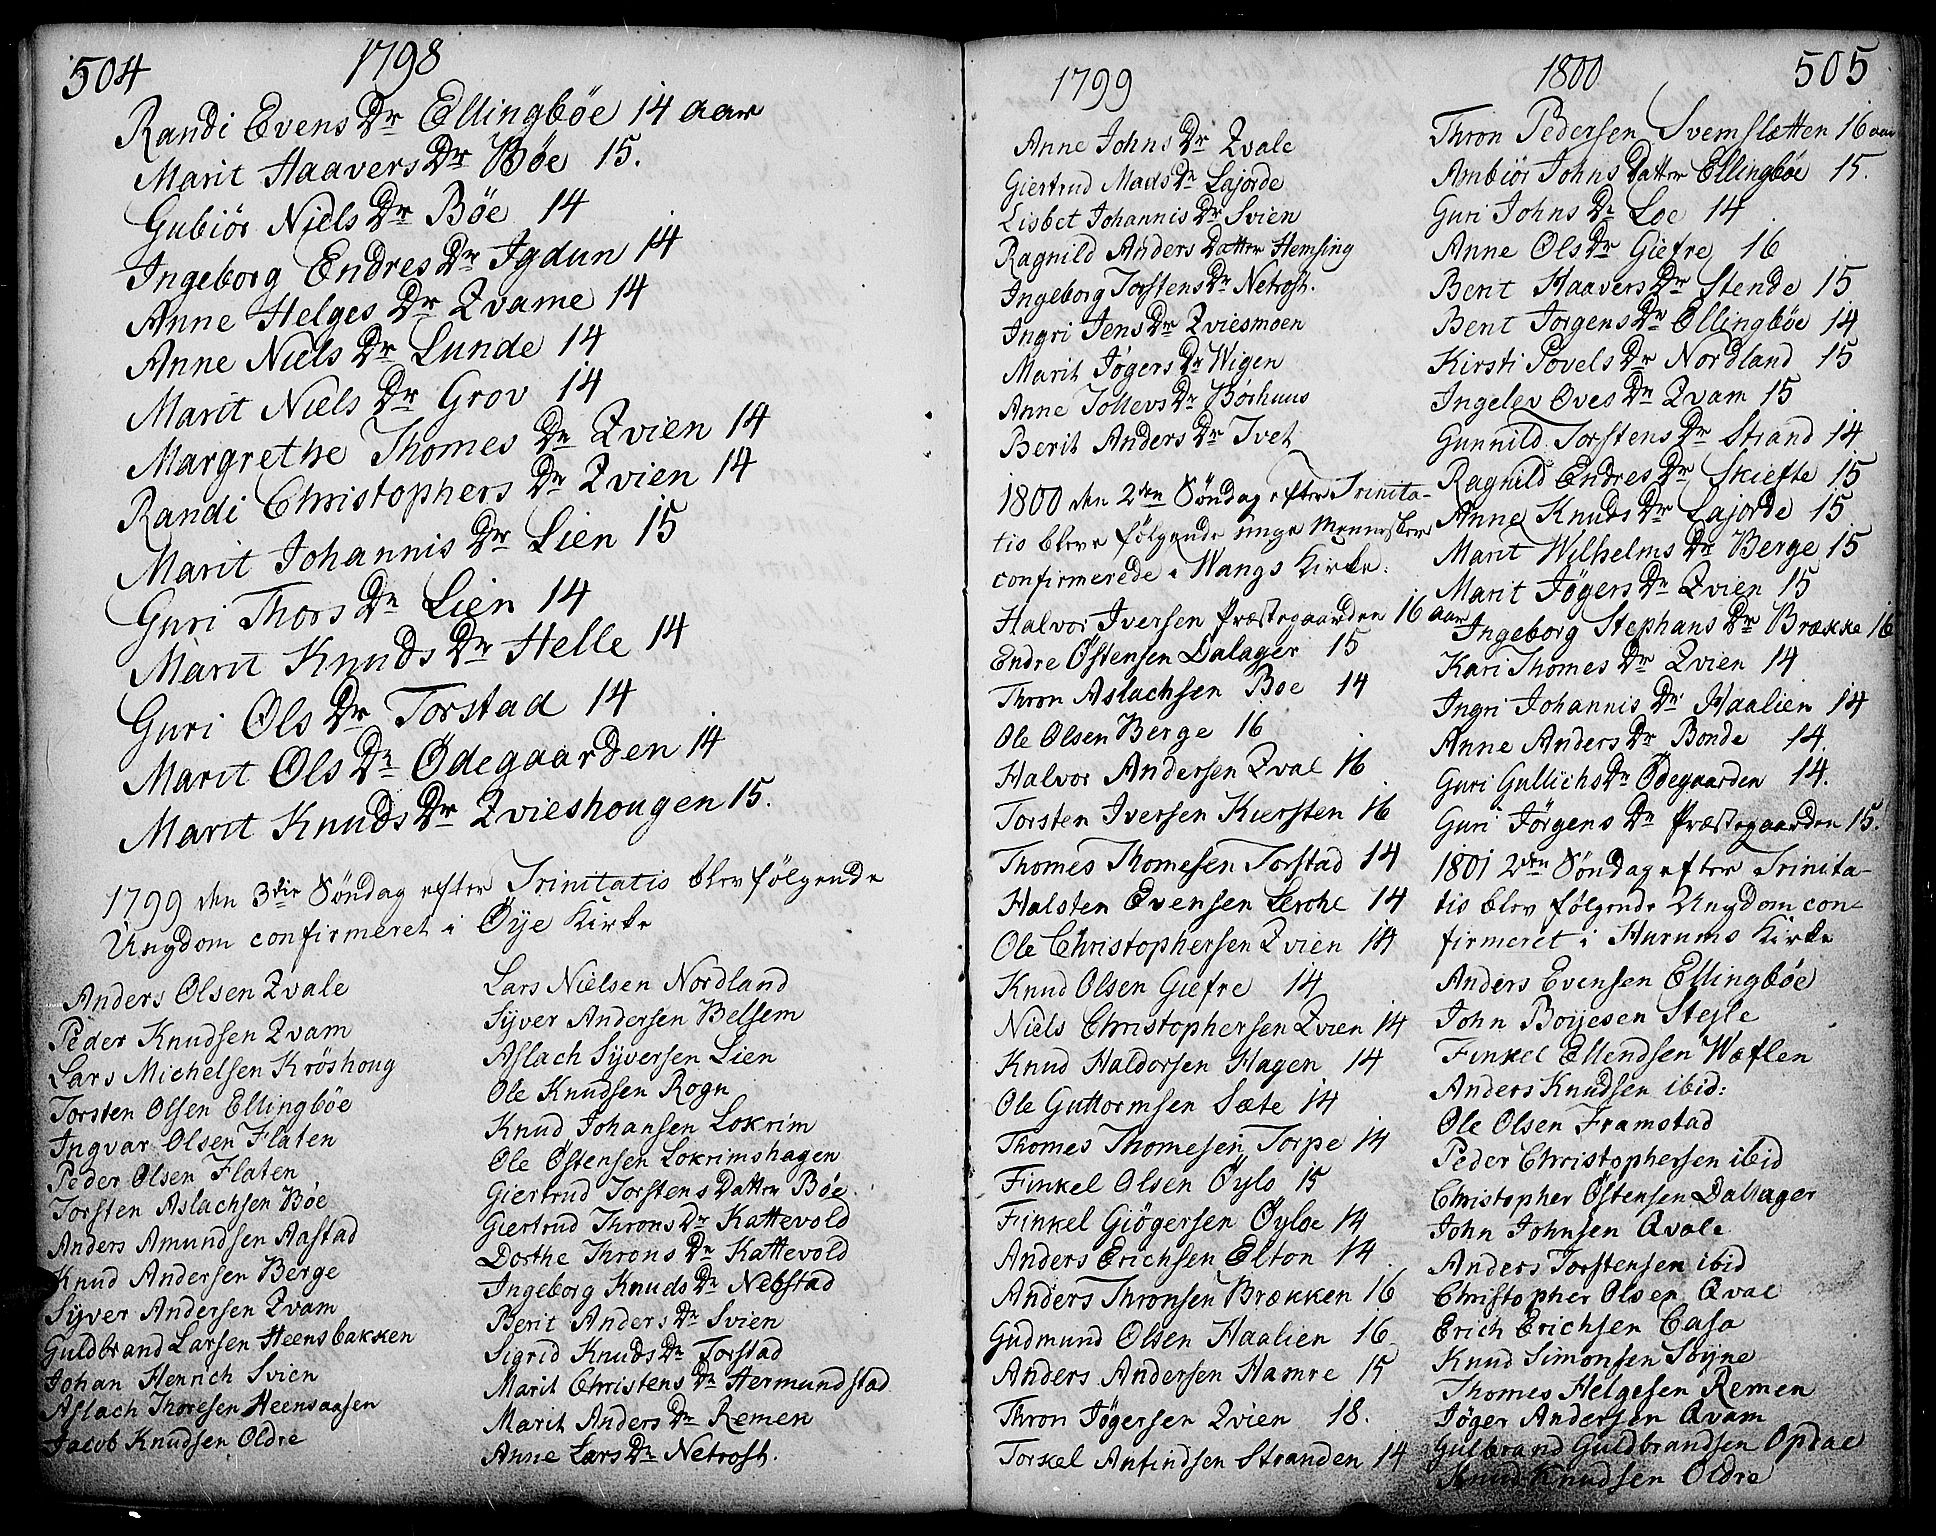 504
1798
Randi Evens Dr Ellingböe 14 aar
Marit Haavers Dr Böe 15.
Gubiör Niels Dr Böe 14
Ingeborg Endres Dr Igdun 14
Anne Helges Dr Qvame 14
Anne Niels Dr Lunde 14
Marit Niels Dr Grov 14
Margrethe Thomes Dr Qvien 14
Randi Christophers Dr Qvien 14
Marit Johannis Dr Lien 15
Guri Thors Dr Lien 14
Marit Knuds Dr Helle 14
Guri Ols Dr Torstad 14
Marit Ols Dr Ödegaarden 14
Marit Knuds Dr Qvieshougen 15.
1799 den 3die Söndag efter Trinitatis blev fölgende
Ungdom confirmeret i Öye Kirke
Anders Olsen Qvale
Peder Knudsen Qvam
Lars Michelsen Kröshoug
Torsten Olsen Ellingböe
Ingvar Olsen Flaten
Peder Olsen Flaten
Torsten Aslachsen Böe
Anders Amundsen Aastad
Knud Andersen Berge
Syver Andersen Qvam
Guldbrand Larsen Heensbakken
Johan Henrich Svien
Aslach Thoresen Heensaasen
Jacob Knudsen Oldre
Lars Nielsen Nordland
Syver Andersen Belsem
Aslach Syversen Lien
Ole Knudsen Rogn
Knud Johansen Lokrim
Ole Östensen Lokrimshagen
Giertrud Torstens Datter Böe
Giertrud Throns Dr Kattevold
Dorthe Throns Dr Kattevold
Ingeborg Knuds Dr Nebstad
Berit Anders Dr Svien
Sigrid Knuds Dr Torstad
Marit Christens Dr Hermundstad
Marit Anders Dr Remen
Anne Lars Dr Netrost.
1799
Anne Johns Dr Qvale
Giertrud Mads Dr Lajorde
Lisbet Johannis Dr Svien
Ragnild Anders Datter Hemsing
Ingeborg Torstens Dr Netrost.
Ingri Jens Dr Qviesmoen
Marit Jögers Dr Wigen
Anne Tollevs Dr Börhuus
Berit Anders Dr Tvet
1800 den 2den Söndag efter Trinita-
tis bleve fölgende unge Mennesker
confirmerede i Wangs Kirke:
Halvor Iversen Præstegaarden 16 aar
Endre Östensen Dalager 15
Thron Aslachsen Boe 14
Ole Olsen Berge 16
Halvor Andersen Qval 16
Torsten Iversen Kiersten 16
Thomes Thomesen Torstad 14
Halsten Evensen Lerche 14
Ole Christophersen Qvien 14
Knud Olsen Giefre 14
Niels Christophersen Qvien 14
Knud Haldorsen Hagen 14
Ole Guttormsen Sæte 14
Thomes Thomesen Torpe 14
Finkel Olsen Öylo 15
Finkel Giögersen Öyloe 14
Anders Erichsen Elton 14
Anders Thronsen Brækken 16
Gudmund Olsen Haalien 16
Anders Andersen Hamre 15
Thron Jögersen Qvien 18.
Torkel Anfindsen Stranden 14
1800
505
Thron Pedersen Svemslætten 16 aar
Ambiör Johns Datter Ellingböe 15.
Guri Johns Dr Loe 14
Anne Ols Dr Giefre 16
Berit Haavers Dr Stende 15
Berit Jorgens Dr Ellingböe 14
Kirsti Povels Dr Nordland 15
Ingelev Oves Dr Qvam 15
Gunnild Torstens Dr Strand 14
Ragnild Endres Dr Skiefte 15
Anne Knuds Dr Lajorde 15
Marit Wilhelms Dr Berge 15
Marit Jögers Dr Qvien 15
Ingeborg Stephans Dr Brække 16
Kari Thomes Dr Qvien 14
Ingri Johannis Dr Haalien 14
Anne Anders Dr Bonde 14.
Guri Gullichs Dr Ödegaarden 14.
Guri Jörgens Dr Præstegaarden 15.
1801 2den Söndag efter Trinita-
tis blev fölgende Ungdom con-
firmeret i Hurums Kirke
Anders Evensen Ellingböe
John Boyesen Stejle
Finkel Ellendsen Wæflen
Anders Knudsen ibid:
Ole Olsen Framstad
Peder Christophersen ibid
Christopher Östensen Dallager
John Johnsen Qvale
Anders Torstensen ibid
Christopher Olsen Qvale
Erich Erichsen Casa
Knud Simonsen Söyne
Thomes Helgesen Remen
Jöger Andersen Qvam
Gulbrand Guldbrandsen Opdal
Knud Knudsen Oldre